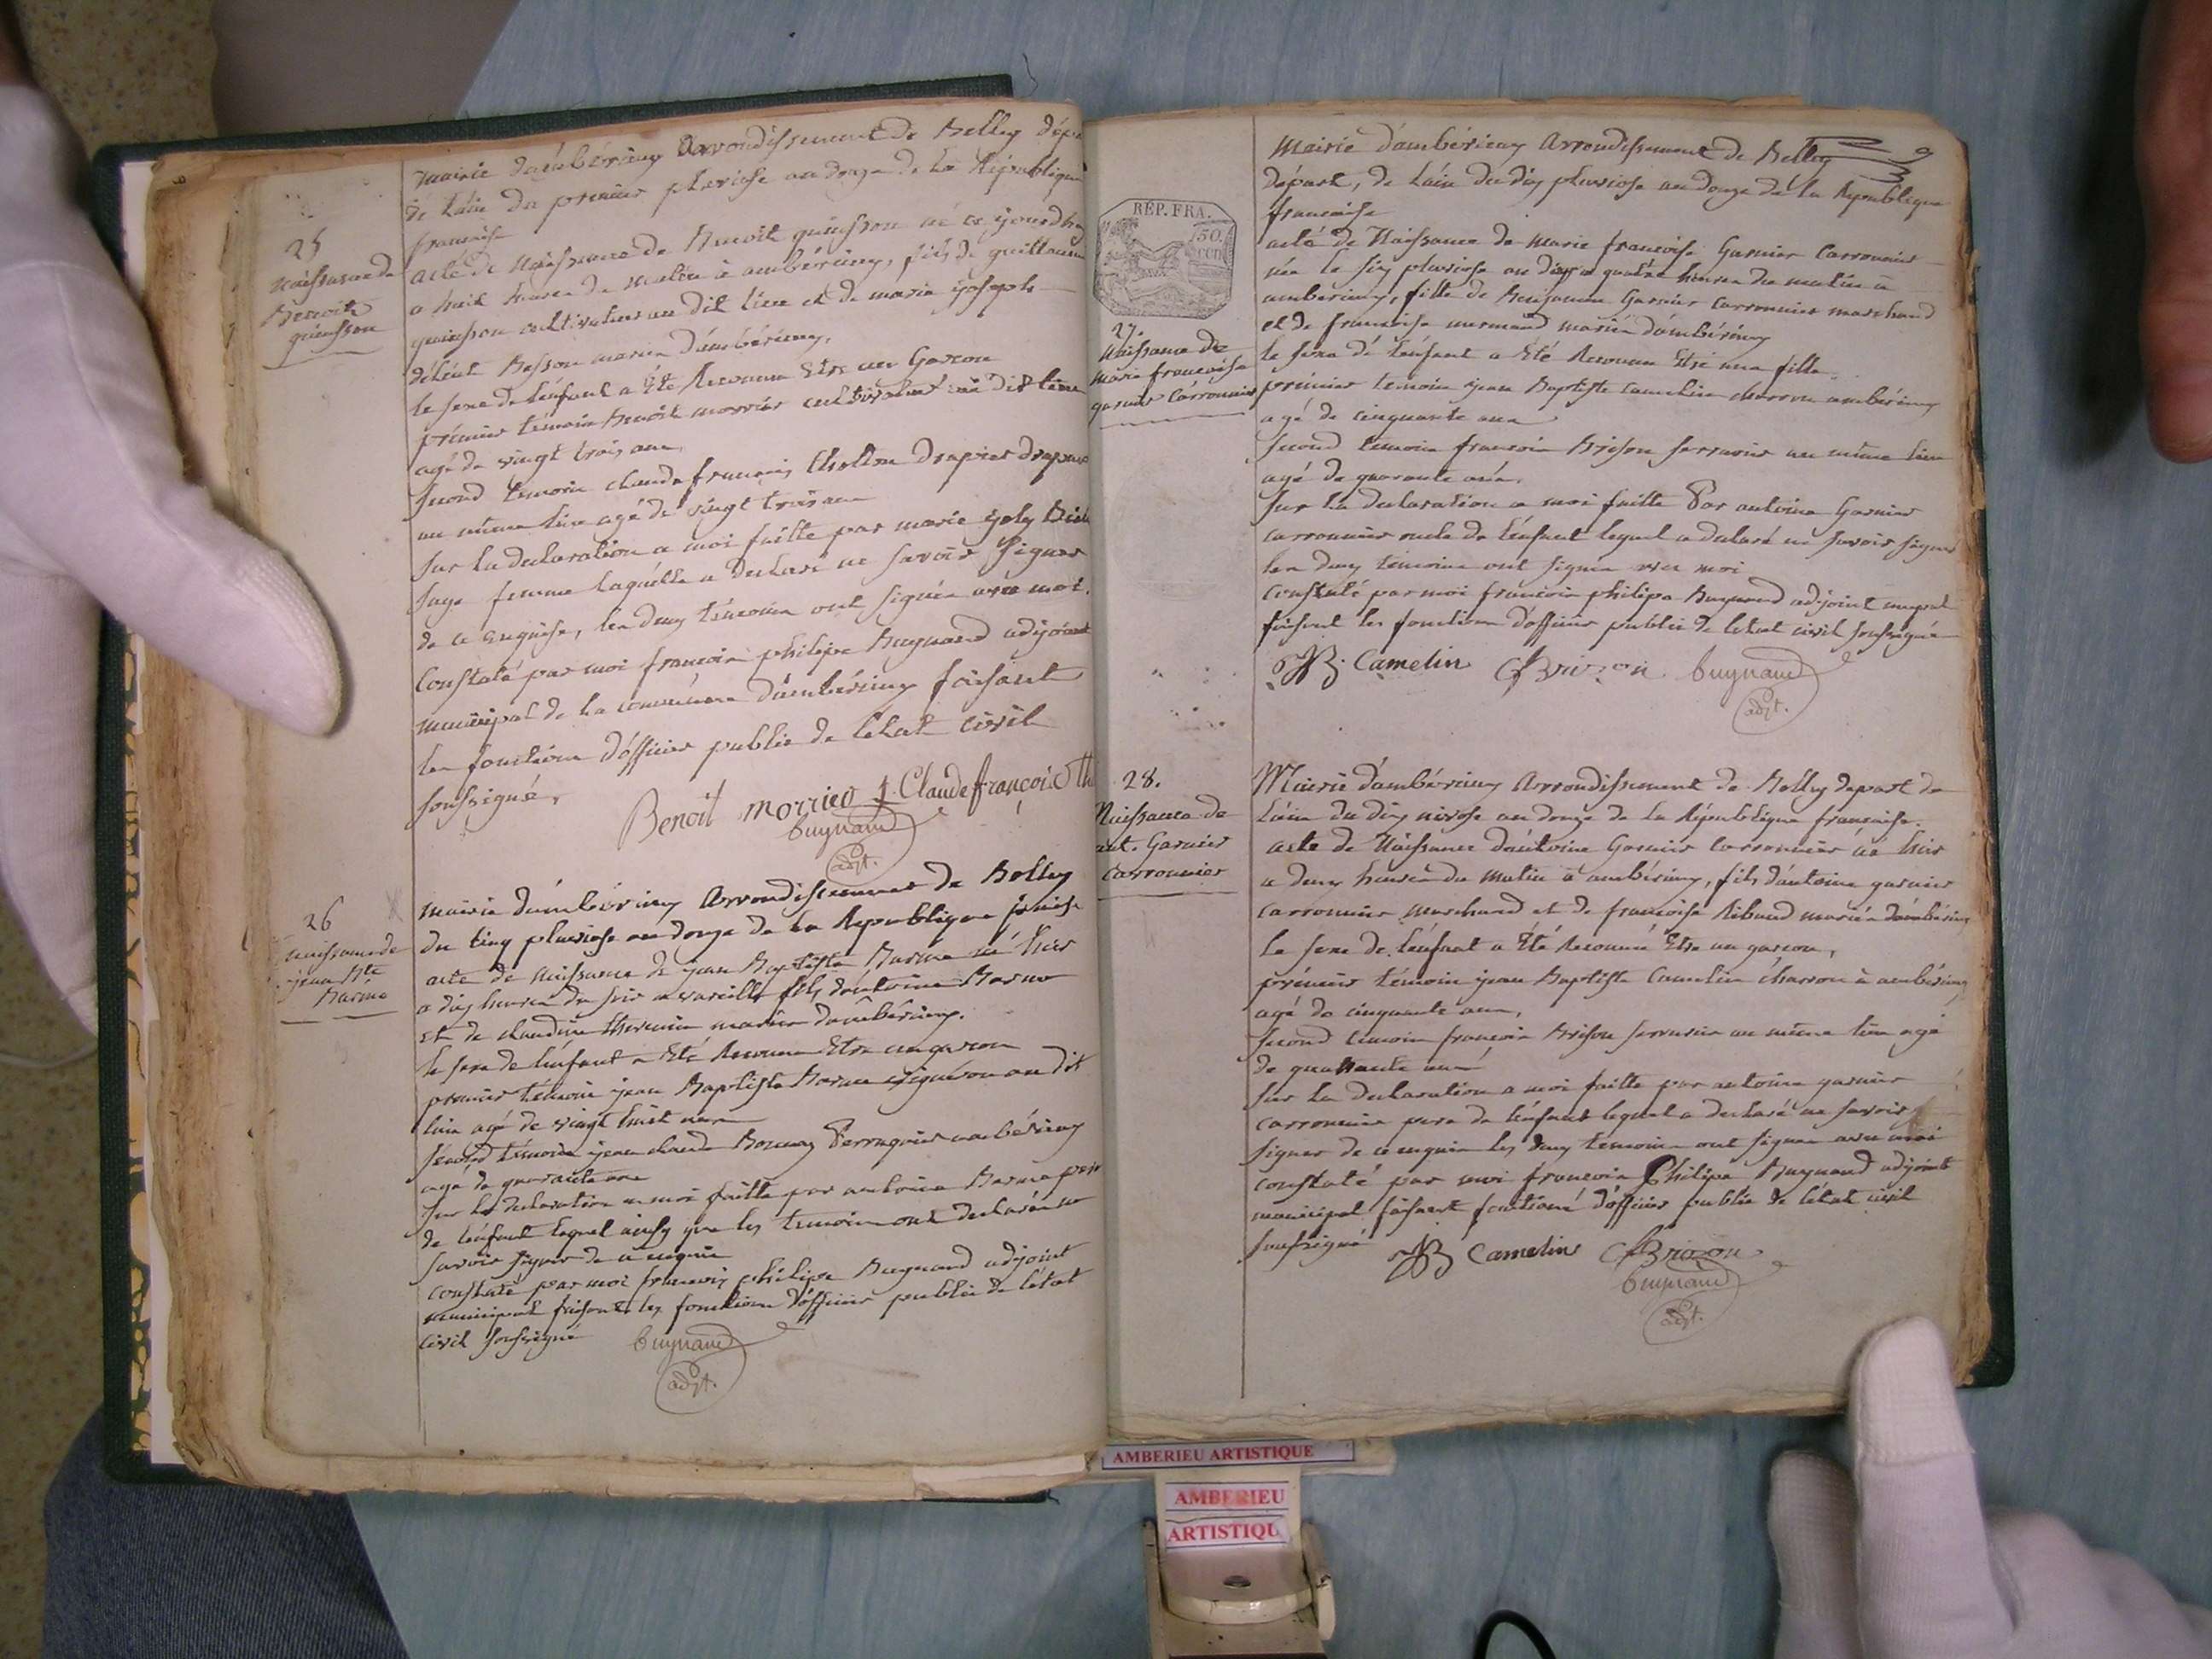 25
Naissance de
Benoit
quinsson
Mairie d'ambérieux Arrondissement de Belley dépa
de Lain du premier pluviose an douze de la République
francaise
acte de Naissance de Benoit quinsson né ce jourdhuy
a huit heures du matin à ambérieux, fils de guillaume
quinsson cultivateur au dit lieu et de marie joseph
Besson mariés d'ambérieux,
le sexe de l'enfant a été Reconnu Etre un Garcon
prémier témoin Benoit morrier cultivateur au dit lieu
agé de vingt trois ans
second temoin claude francois drapier
au même lieu agé de vingt trois ans
sur la declaration a moi faitte par marie joly
sage femme laquelle a declaré ne savoir signer
de ce enquise, les deux témoins ont signés avec moi.
Constaté par moi francois philipe Buynand adjoint
municipal de la commune d'ambérieux faisant
les fonctions d'officier public de letat civil
soussigné,
Benoit morrier Claude françois
buynand
adjt.
26
naissance de
jean Bte
Barme
mairie d'ambérieux Arrondissement de Belley
du cinq pluviose an douze de la Republique
acte de naissance de jean Baptiste Barme né hier
a dix heures du soir a vareille fils d'antoine Barme
et de claudine mariés d'ambérieux.
le sexe de l'enfant a été Reconnu Etre un garcon
premier témoin jean Baptiste Barme vigneron au dit
lieu agé de vingt huit ans
second témoin jean claude Perruquier ambérieux
agé de quarante ans
sur la declaration a moi faitte par antoine Barme pere
de l'enfant lequel ainsy que les temoins ont declarés ne
savoir signer de ce enquis
constaté par moi francois philipe Buynand adjoint
municipal faisant les fonctions d'officier public de l'état
civil soussigné
buynand
adjt.
9
RÉP. FRA.
50.
cen
27.
Naissance de
marie francoise
garnier Carronnier
Mairie d'ambérieux Arrondissement de Belley
départ, de Lain du dix pluviose an douze de la République
francaise
acte de Naissance de marie francoise Garnier Carronnier
née le six pluviose an dix a quatre heures du matin a
ambérieux, fille de Benjamin Garnier Carronnier marchand
et de francoise mariés d'ambérieux
le sexe de l'enfant a été Reconnu Etre une fille
prémier temoin jean Baptiste camelin charron ambérieux
agé de cinquante ans
second temoin francois Brison serrurier au même lieu
agé de quarante ans.
sur la declaration a moi faitte Par antoine Garnier
carronnier oncle de l'enfant lequel a declaré ne savoir signer
les deux témoins ont signés avec moi
constaté par moi francois philipe Buynand adjoint mupal
faisant les fonctions d'officier public de letat civil soussigné
JB. Camelin Brizon buynand
adjt.
28.
Naissance de
ant. Garnier
Carronnier
Mairie d'ambérieux Arrondissement de Belley depart de
Lain du dix nivose an douze de la République francaise.
acte de Naissance d'antoine Garnier Carronnier né hier
a deux heures du matin a ambérieux, fils d'antoine garnier
carronnier marchand et de francoise Ribaud mariés d'ambérieux
le sexe de l'enfant a été Reconnu Etre un garcon,
prémier témoin jean Baptiste Camelin charron à ambérieux
agé de cinquante ans,
second temoin francois Brison serrurier au même lieu agé
de quarante ans
sur la declaration a moi faitte par antoine garnier
carronnier pere de l'enfant lequel a declaré ne savoir
signer de ce enquis les deux témoins ont signés avec moi
constaté par moi francois Philipe Buynand adjoint
municipal faisant fonctions d'officier public de l'état civil
soussigné JB Camelin Brizon
buynand
adjt.
AMBERIEU ARTISTIQUE
AMBERIEU
ARTISTIQU